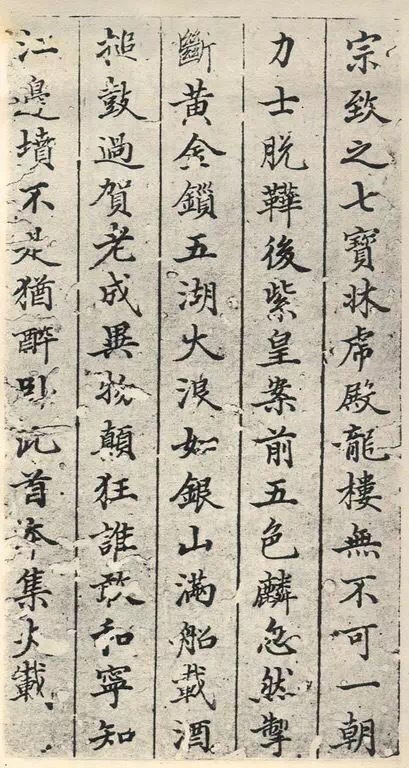 宗致之七寶牀虎殿龍樓無不可一朝
力士脫鞾後紫皇案前五色麟忽然掣
斷黃金鎖五湖大浪如銀山滿船載酒
搥鼓過賀老成異物顛狂誰敢和寧知
江邊墳不是猶醉臥此首本集載